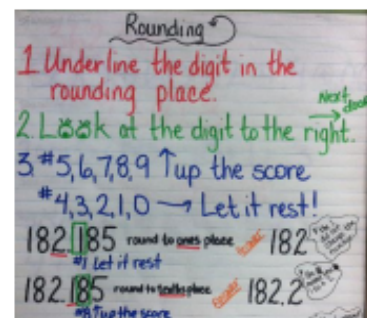 Rounding
1. Underline the digit in the
rounding place.
Next door
2. Look at the digit to the right.
3. #5,6,7,8,9 ↑up the score
#4,3,2,1,0 → Let it rest!
182.185 round to ones place 182
#1 Let it rest
182.185 round to tenths place 182.2
#8 ↑up the score